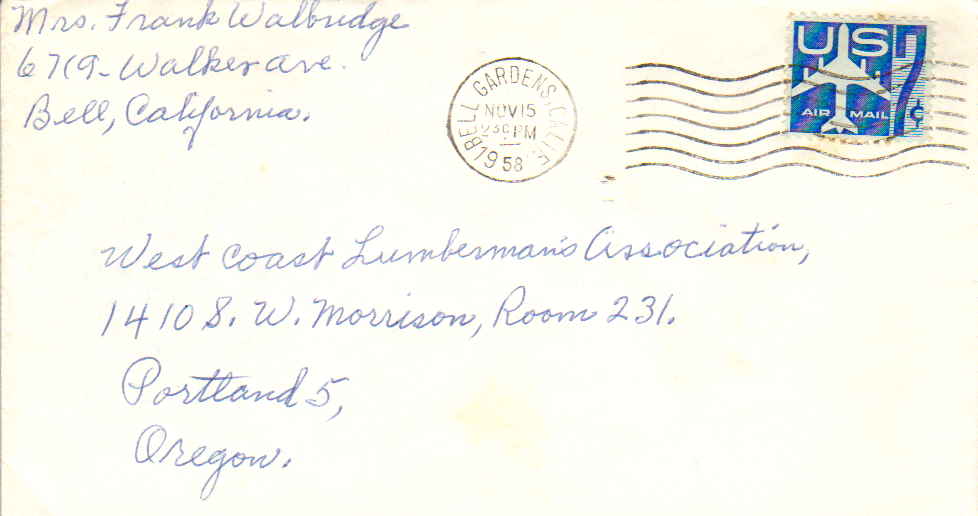 Mrs. Frank Walbridge
6719- Walker ave.
Bell, California.
BELL GARDENS, CALIF.
NOV 15
2 30 PM
1958
US
7¢
AIR MAIL
West Coast Lumberman's Association,
1410 S. W. Morrison, Room 231.
Portland 5,
Oregon.